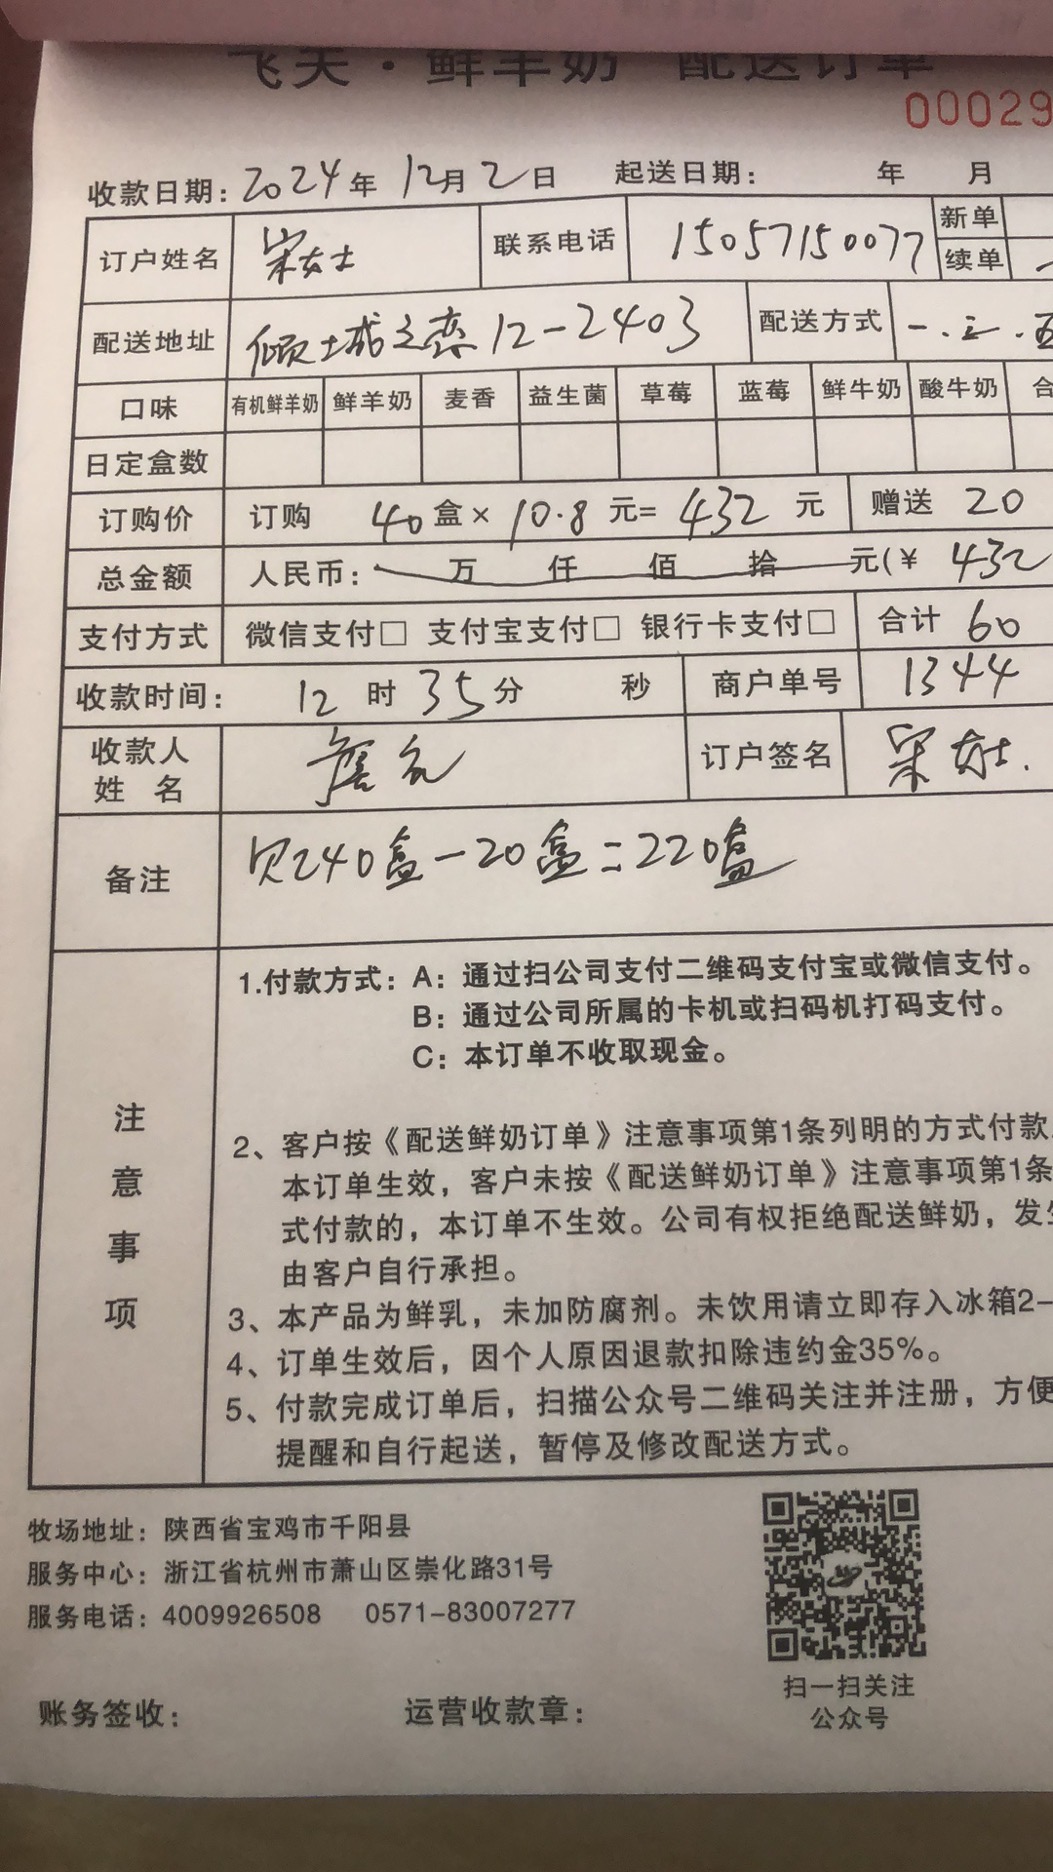 飞天·鲜羊奶 配送订单
00029
收款日期：2024年 12月 2日 起送日期： 年 月
订户姓名 宋女士 联系电话 15057150077 新单
续单
配送地址 倾城之恋 12-2403 配送方式 一.三.五
口味 有机鲜羊奶 鲜羊奶 麦香 益生菌 草莓 蓝莓 鲜牛奶 酸牛奶 合
日定盒数
订购价 订购 40 盒× 10.8 元= 432 元 赠送 20
总金额 人民币： 万 仟 佰 拾 元(¥ 432
支付方式 微信支付□ 支付宝支付□ 银行卡支付□ 合计 60
收款时间： 12 时 35 分 秒 商户单号 1344
收款人
姓 名 订户签名 宋女士.
备注 欠240盒-20盒=220盒
注意事项
1.付款方式：A：通过扫公司支付二维码支付宝或微信支付。
B：通过公司所属的卡机或扫码机打码支付。
C：本订单不收取现金。
2、客户按《配送鲜奶订单》注意事项第1条列明的方式付款
本订单生效，客户未按《配送鲜奶订单》注意事项第1条
式付款的，本订单不生效。公司有权拒绝配送鲜奶，发生
由客户自行承担。
3、本产品为鲜乳，未加防腐剂。未饮用请立即存入冰箱2-
4、订单生效后，因个人原因退款扣除违约金35%。
5、付款完成订单后，扫描公众号二维码关注并注册，方便
提醒和自行起送，暂停及修改配送方式。
牧场地址：陕西省宝鸡市千阳县
服务中心：浙江省杭州市萧山区崇化路31号
服务电话：4009926508 0571-83007277
扫一扫关注
公众号
账务签收： 运营收款章：